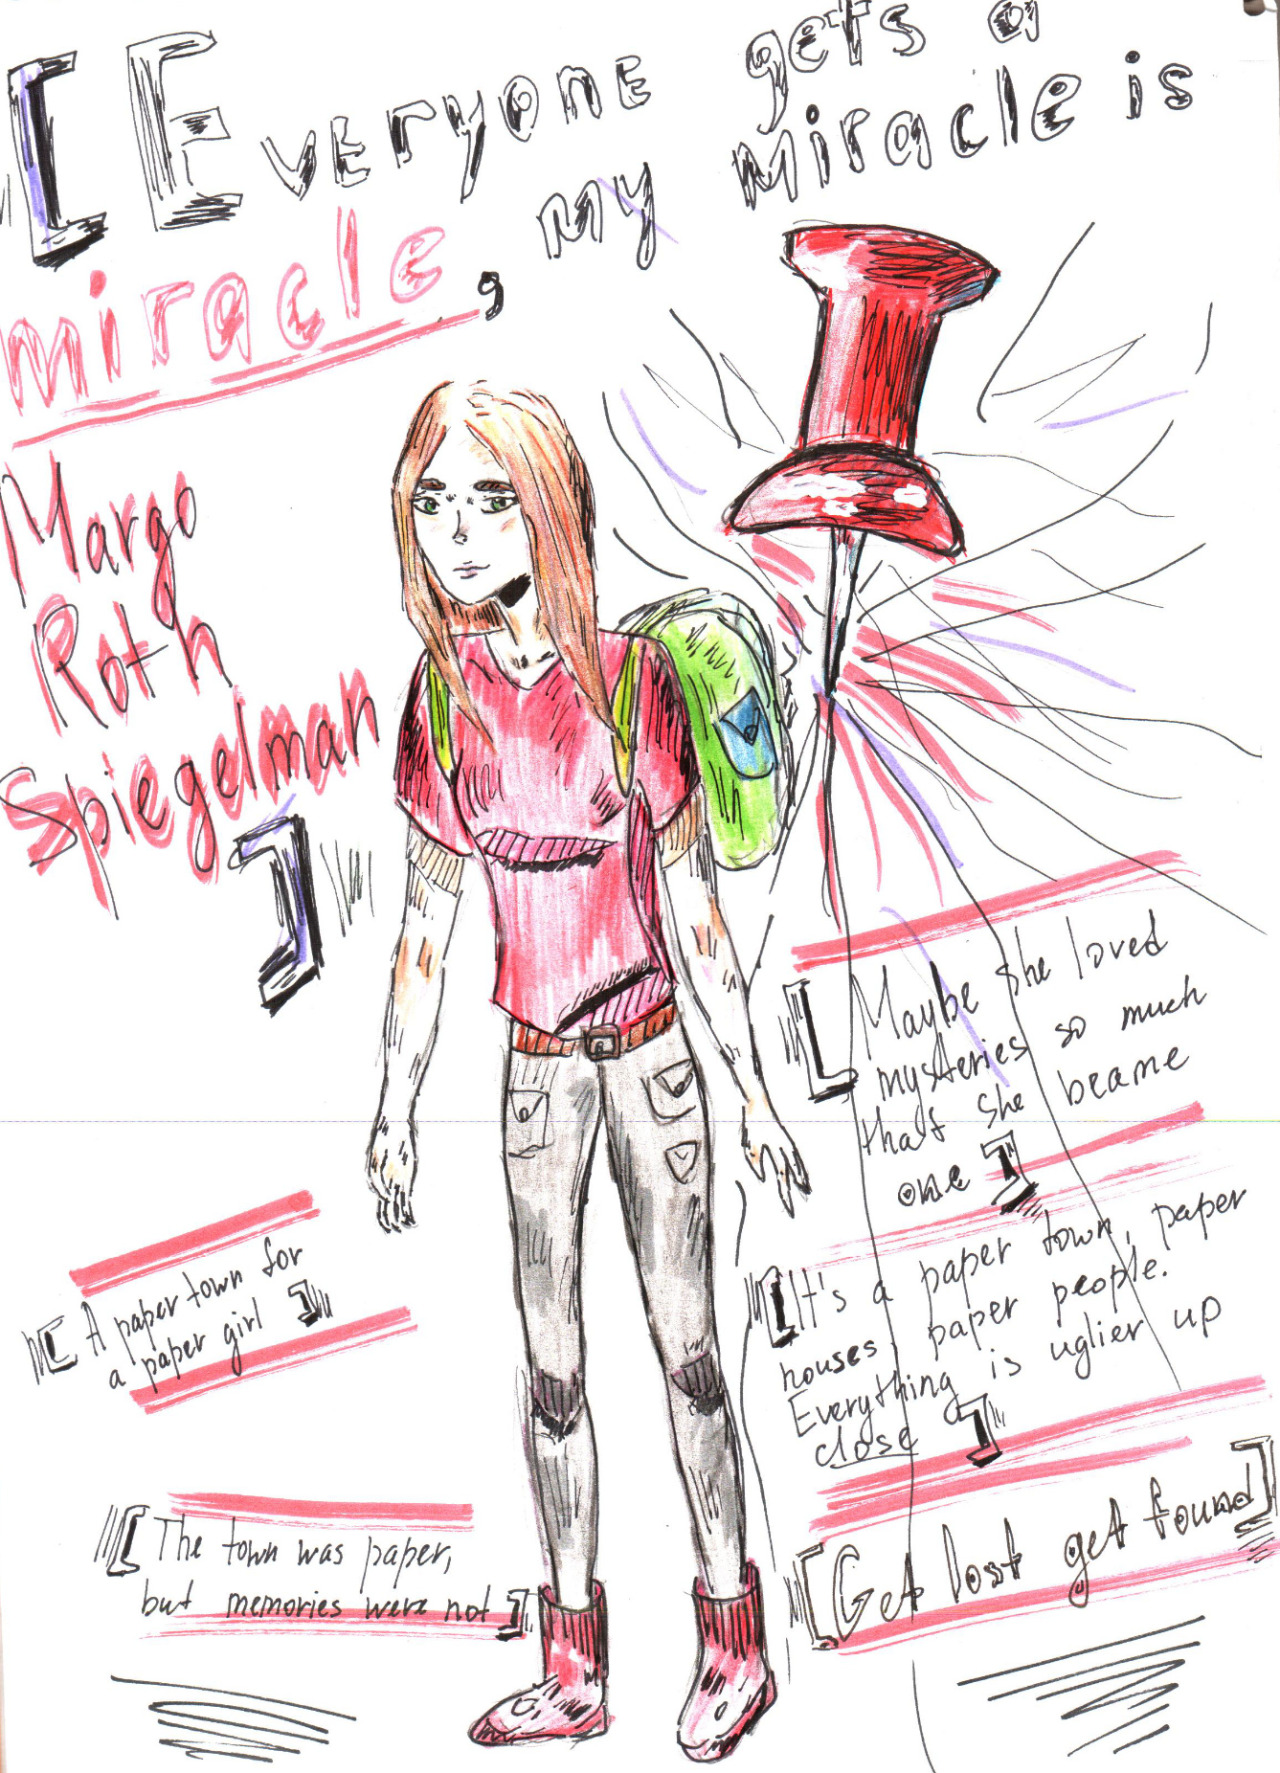 [Everyone gets a
miracle, my miracle is
Margo
Roth
Spiegelman]
[Maybe she loved
mysteries so much
that she beame
one]
[It's a paper town, paper
houses, paper people.
Everything is uglier up
close]
[A paper town for
a paper girl]
[The town was paper,
but memories were not]
[Get lost get found]